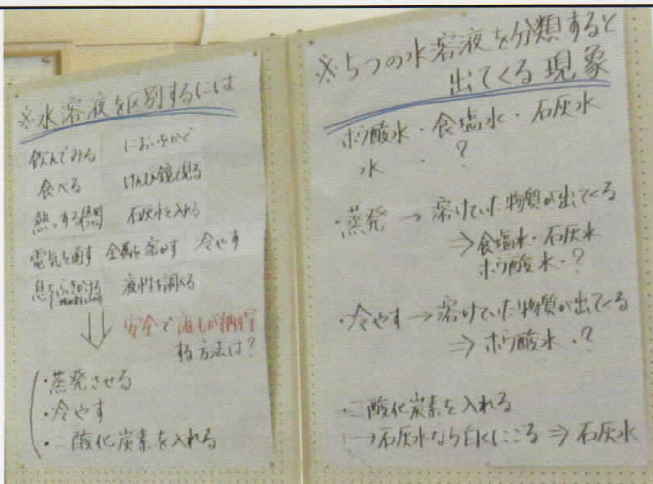 ※水溶液を区別するには
飲んでみる　においをかぐ
食べる　けんび鏡で見る
熱する　石灰水を入れる
電気を通す　金属を溶かす　冷やす
息をふきかける　液性を調べる
安全で誰もが納得
する方法は?
・蒸発させる
・冷やす
・二酸化炭素を入れる
※5つの水溶液を分類すると
出てくる現象
ホウ酸水・食塩水・石灰水
水・?
・蒸発→溶けていた物質が出てくる
⇒食塩水・石灰水
ホウ酸水・?
・冷やす→溶けていた物質が出てくる
⇒ホウ酸水・?
・二酸化炭素を入れる
→石灰水なら白くにごる⇒石灰水